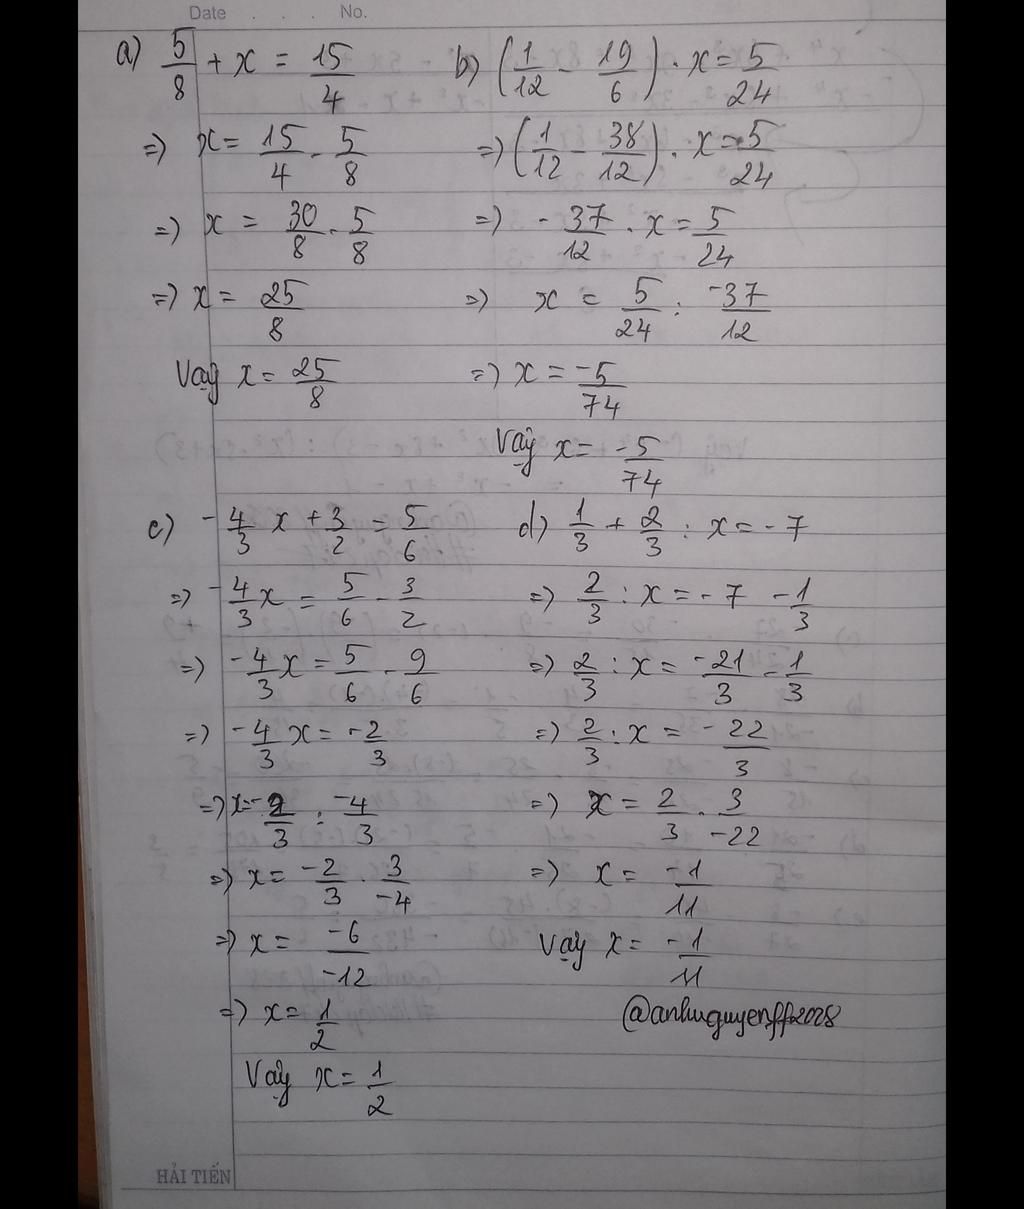 Date . . . No.
a) 5/8 + x = 15/4
=) x = 15/4 - 5/8
=) x = 30/8 - 5/8
=) x = 25/8
Vậy x = 25/8
b) (1/12 - 19/6) . x = 5/24
=) (1/12 - 38/12) . x = 5/24
=) -37/12 . x = 5/24
=) x = 5/24 : -37/12
=) x = -5/74
Vậy x = -5/74
c) -4/3 x + 3/2 = 5/6
=) -4/3 x = 5/6 - 3/2
=) -4/3 x = 5/6 - 9/6
=) -4/3 x = -2/3
=) x = -2/3 : -4/3
=) x = -2/3 . 3/-4
=) x = -6/-12
=) x = 1/2
Vậy x = 1/2
d) 1/3 + 2/3 : x = -7
=) 2/3 : x = -7 - 1/3
=) 2/3 : x = -21/3 - 1/3
=) 2/3 : x = -22/3
=) x = 2/3 . 3/-22
=) x = -1/11
Vậy x = -1/11
@anhnguyenff2008
HẢI TIẾN